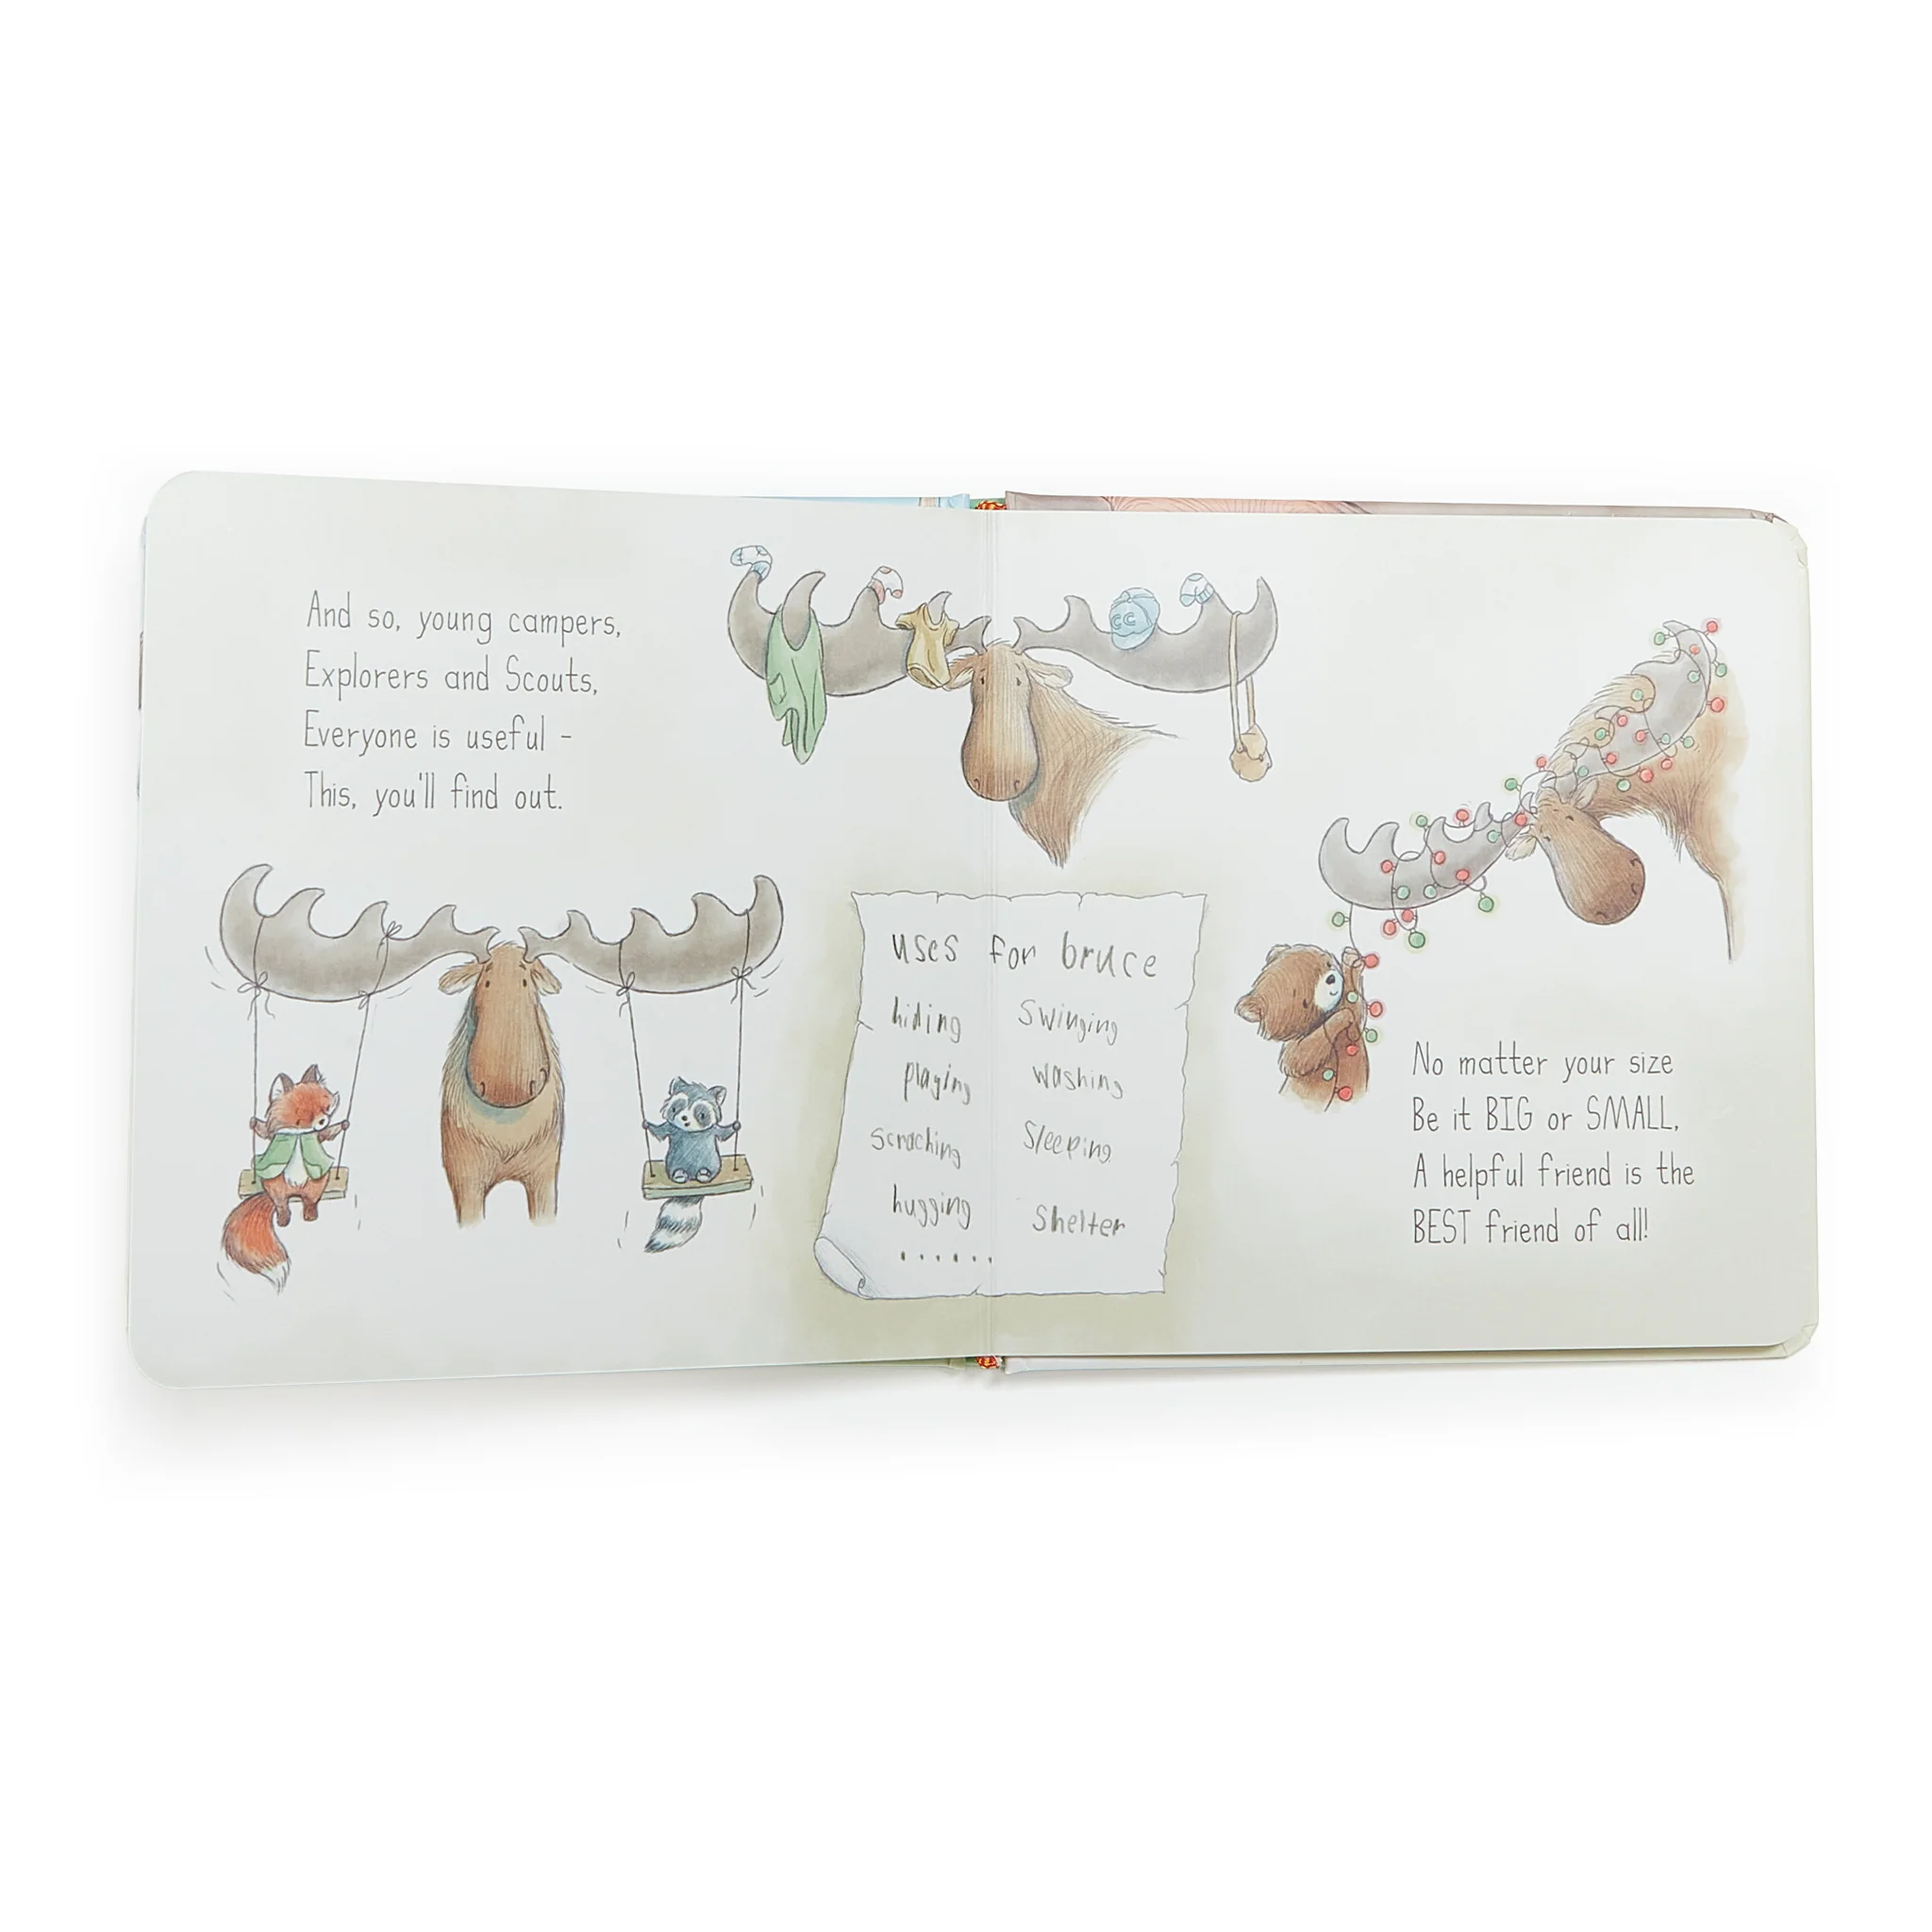 And so, young campers,
Explorers and Scouts,
Everyone is useful -
This, you'll find out.
CC
uses for bruce
hiding Swinging
playing Washing
Scraching Sleeping
hugging Shelter
.......
No matter your size
Be it BIG or SMALL,
A helpful friend is the
BEST friend of all!